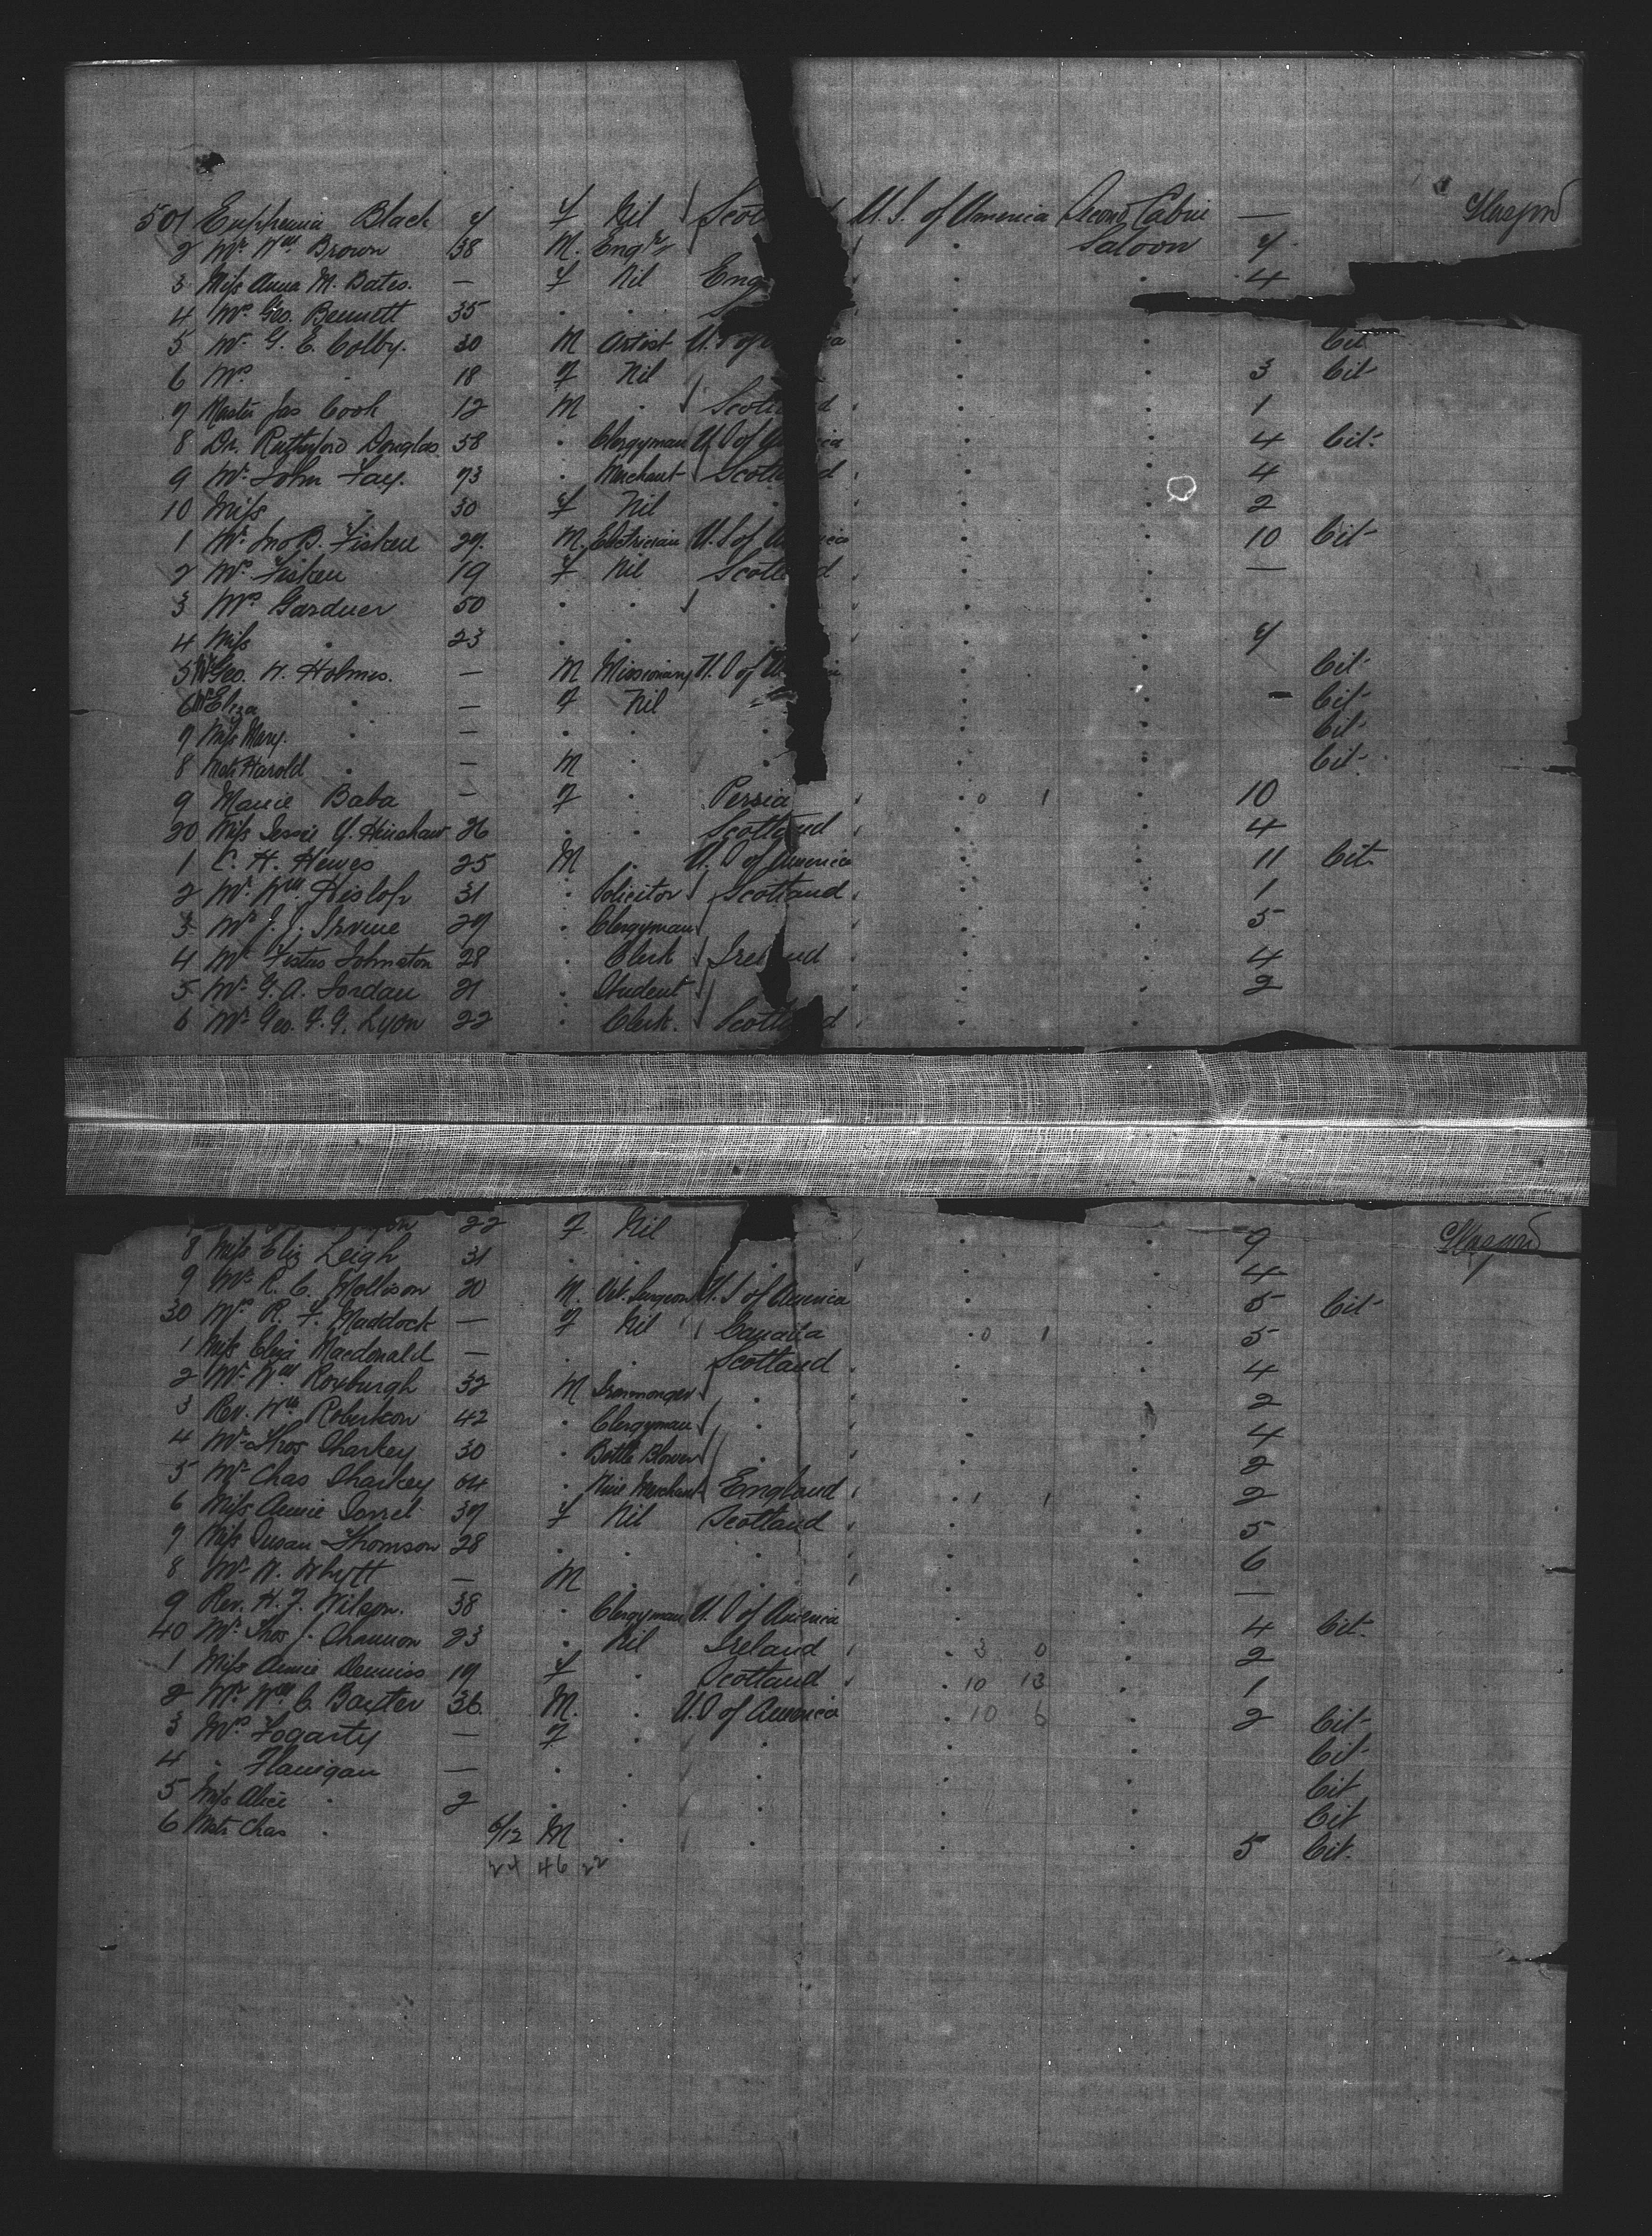 501 Euphemia Black 4 F Nil Scot U.S. of America Second Cabin — Glasgow
2 Mr. Wm. Brown 38 M. Eng'r Saloon 4
3 Miss Anna M. Bates. — F Nil Eng 4
4 Mrs. Geo. Bennett 35 " " S
5 Mr. G. E. Colby. 30 M Artist U.S of a Cit
6 Mrs. " 18 F Nil 3 Cit
7 Master Jas Cook 12 M " Scotl d 1
8 Dr. Rutherford Douglas 38 " Clergyman U.S of A ica 4 Cit-
9 Mr. John Fay. 73 " Merchant Scotl d 4
10 Miss " 30 F Nil " 2
1 Mr. Jno B. Fisken 29. M. Electrician U.S of A ica 10 Cit
2 Mrs. Fisken 19 F Nil Scotl d —
3 Mrs. Gardner 50 " " "
4 Miss " 23 " " " 4
5 Mr Geo. W. Holmes. — M Missionary U.S of A Cit
6 Mrs Eliza " — F Nil Cit
7 Miss Mary. " — " " " Cit
8 Mstr Harold " — M " " Cit
9 Manie Baba — F " Persia 0 1 10
20 Miss Jessie Y. Hinshaw 26 " " Scotland 4
1 C. H. Hewes 25 M " U.S of America 11 Cit
2 Mr. Wm. Hislop 31 " Solicitor Scotland 1
3 Mr J. J. Irvine 29 " Clergyman 5
4 Mr Festus Johnston 28 " Clerk Irel nd 4
5 Mr. G. A. Jordan 21 " Student 2
6 Mr. Geo. G. G. Lyon 22 " Clerk. Scotl d
yon 22 F Nil 9 Glasgow
8 Miss Eliz Leigh 31 " " 4
9 Mr. R. C. Mollison 20 M. Vet. Surgeon U.S of America 5 Cit
30 Mrs. R. F. Maddock — F Nil Canada 0 1 5
1 Miss Eliza Macdonald — " " Scotland 4
2 Mr. Wm Roxburgh 32 M Ironmonger " 2
3 Rev. Wm Robertson 42 " Clergyman " 4
4 Mr. Thos Sharkey 30 " Bottle Blower " 2
5 Mr Chas Sharkey 64 " Wine Merchant England 1 1 2
6 Miss Annie Sorrel 37 F Nil Scotland 5
7 Miss Susan Thomson 28 " " " 6
8 Mr. W. Whytt — M " " —
9 Rev. H. J. Wilson. 38 " Clergyman U.S of America 4 Cit.
40 Mr. Thos J. Channon 23 " Nil Ireland 3 0 2
1 Miss Annie Denniss 19 F " Scotland 10 13 1
2 Mr. Wm. C. Baxter 36 M. " U.S of America 10 6 2 Cit
3 Mrs. Fogarty — F " " Cit
4 " Flanigan — " " " Cit
5 Miss Alice " 2 " " " Cit
6 Mstr Chas " 6/12 M " " 5 Cit.
24 46 22